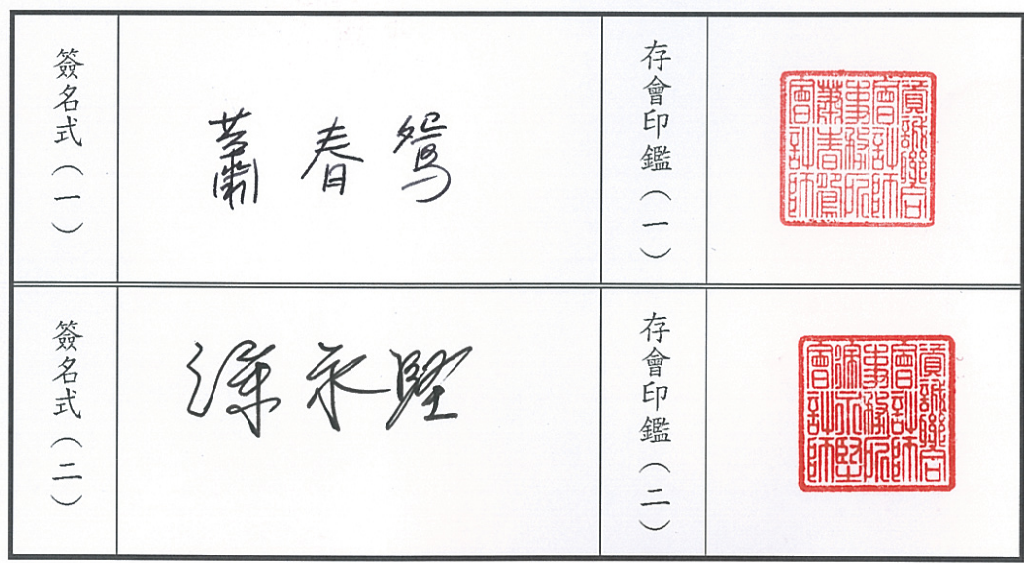 簽名式(一)
蕭春鴛
存會印鑑(一)
資誠聯合
會計師
事務所
蕭春鴛
會計師
簽名式(二)
涂永堅
存會印鑑(二)
資誠聯合
會計師
事務所
會計師